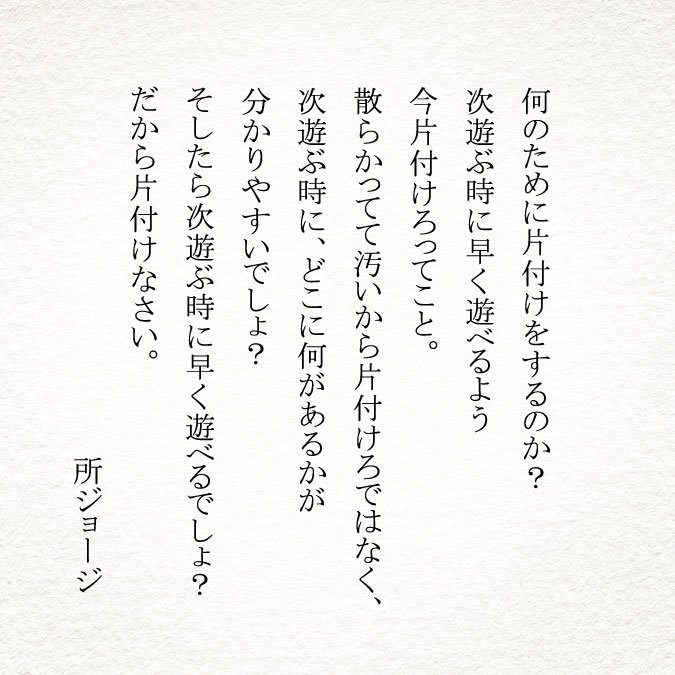 何のために片付けをするのか？
次遊ぶ時に早く遊べるよう
今片付けろってこと。
散らかってて汚いから片付けろではなく、
次遊ぶ時に、どこに何があるかが
分かりやすいでしょ？
そしたら次遊ぶ時に早く遊べるでしょ？
だから片付けなさい。
所ジョージ